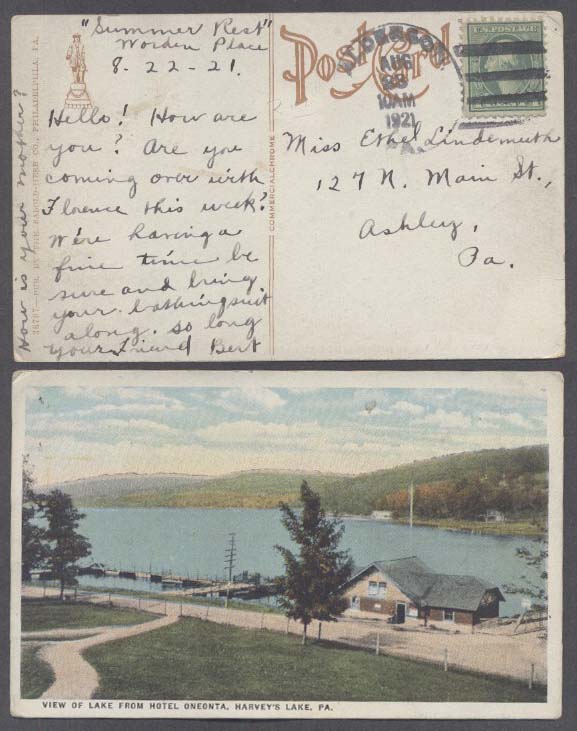 "Summer Rest"
Worden Place
8-22-21.
Hello! How are
you? Are you
coming over with
Florence this week?
We're having a
fine time be
sure and bring
your bathingsuit
along. so long
your Friend Bert
How is your mother?
Post Card
AUG
10AM
1921
U.S. POSTAGE
Miss Ethel Lindemuth
127 N. Main St.,
Ashley,
Pa.
COMMERCIALCHROME
PHILADELPHIA, PA.
VIEW OF LAKE FROM HOTEL ONEONTA, HARVEY'S LAKE, PA.